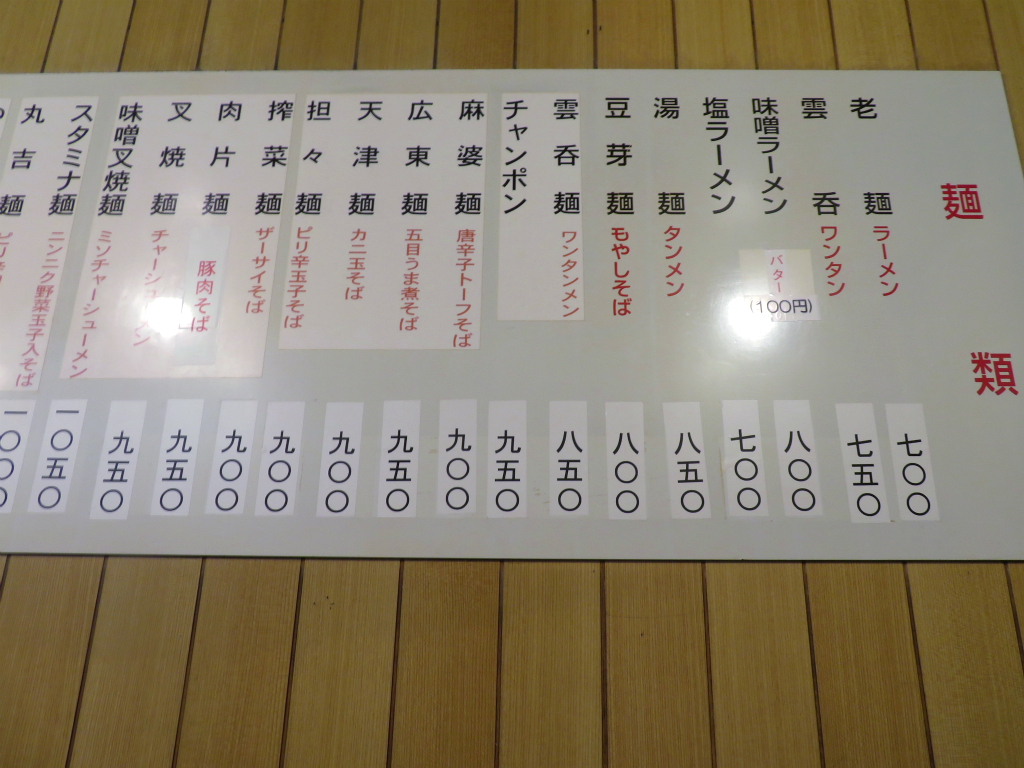 麺類
老麺 ラーメン 七〇〇
雲呑 ワンタン 七五〇
味噌ラーメン 八〇〇
バター
(100円)
塩ラーメン 七〇〇
湯麺 タンメン 八五〇
豆芽麺 もやしそば 八〇〇
雲呑麺 ワンタンメン 八五〇
チャンポン 九五〇
麻婆麺 唐辛子トーフそば 九〇〇
広東麺 五目うま煮そば 九五〇
天津麺 カニ玉そば 九〇〇
担々麺 ピリ辛玉子そば 九〇〇
搾菜麺 ザーサイそば 九〇〇
肉片麺 豚肉そば 九五〇
叉焼麺 チャーシューメン 九五〇
味噌叉焼麺 ミソチャーシューメン 一〇五〇
スタミナ麺 ニンニク野菜玉子入そば 一〇〇〇
丸吉麺